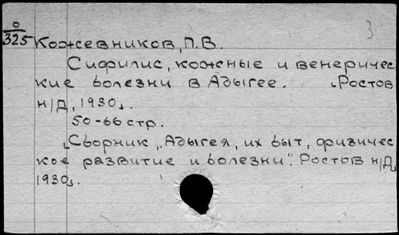 0
325
3
Кожевников, П.В.
Сифилис, кожные и венеричес
кие болезни в Адыгее. Ростов
н/Д, 1930.
50-66 стр.
Сборник „Адыгея, их быт, физичес
кое развитие и болезни", Ростов н/Д
1930.